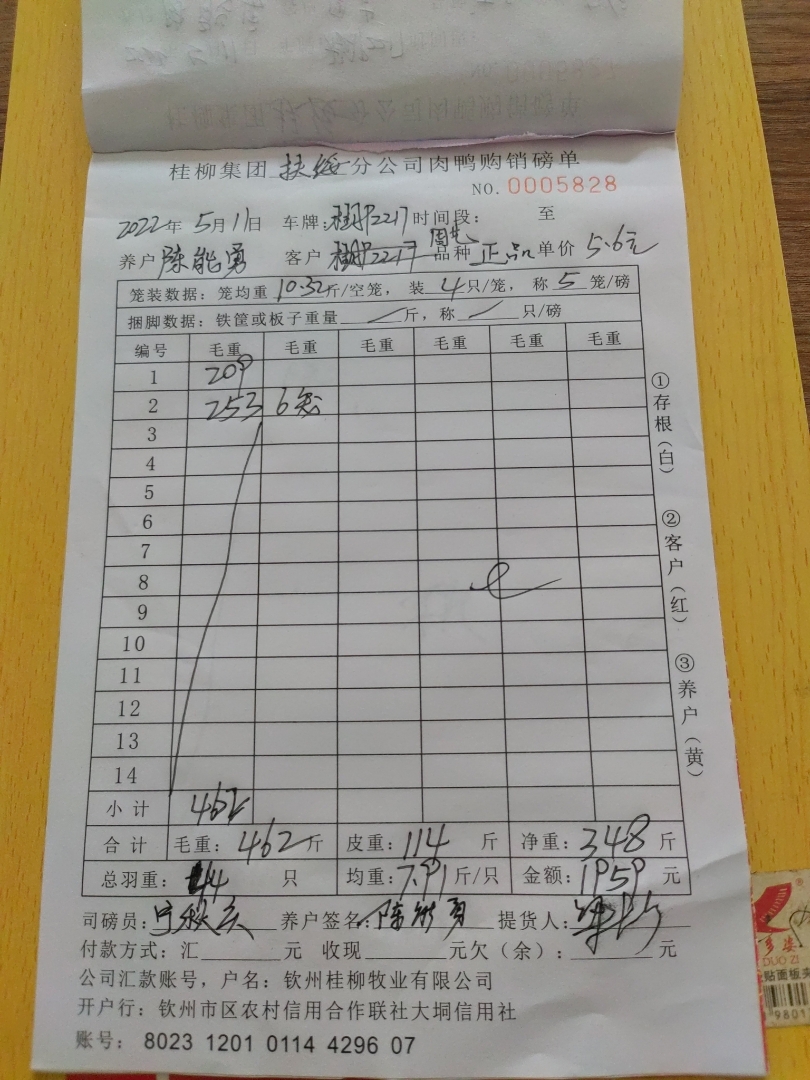 桂柳集团 扶绥 分公司肉鸭购销磅单
NO. 0005828
2022年 5月11日 车牌: 2217 时间段: 至
养户 陈能勇 客户 品种 正品 单价 5.6元
笼装数据: 笼均重 10.32斤/空笼, 装 4只/笼, 称 5 笼/磅
捆脚数据: 铁筐或板子重量 斤, 称 只/磅
编号 毛重 毛重 毛重 毛重 毛重 毛重
1 209
2 253 6笼
3
4
5
6
7
8
9
10
11
12
13
14
小计 462
合计 毛重: 462斤 皮重: 114 斤 净重: 348 斤
总羽重: 44 只 均重: 7.91斤/只 金额: 1959 元
司磅员: 养户签名: 陈能勇 提货人:
付款方式: 汇 元 收现 元欠(余): 元
公司汇款账号, 户名: 钦州桂柳牧业有限公司
开户行: 钦州市区农村信用合作联社大垌信用社
账号: 8023 1201 0114 4296 07
①存根(白)
②客户(红)
③养户(黄)
多姿
DUO ZI
贴面板夹
9801